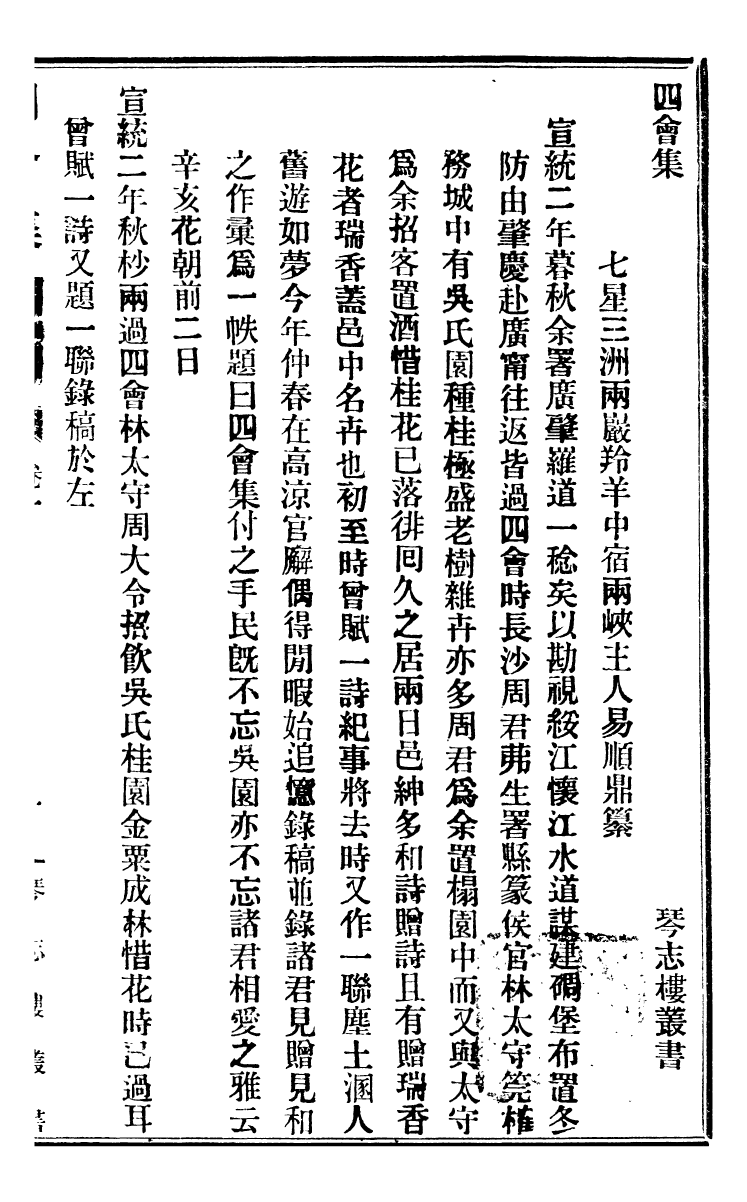 四會集　琴志樓叢書
七星三洲兩巖羚羊中宿兩峽主人易順鼎纂
宣統二年暮秋余署廣肇羅道一稔矣以勘視綏江懷江水道謀建碉堡布置冬
防由肇慶赴廣甯往返皆過四會時長沙周君茀生署縣篆侯官林太守筦榷
務城中有吳氏園種桂極盛老樹雜卉亦多周君爲余置榻園中而又與太守
爲余招客置酒惜桂花已落徘徊久之居兩日邑紳多和詩贈詩且有贈瑞香
花者瑞香蓋邑中名卉也初至時曾賦一詩紀事將去時又作一聯塵土溷人
舊遊如夢今年仲春在高涼官廨偶得閒暇始追憶錄稿並錄諸君見贈見和
之作彙爲一帙題曰四會集付之手民旣不忘吳園亦不忘諸君相愛之雅云
辛亥花朝前二日
宣統二年秋杪兩過四會林太守周大令招飲吳氏桂園金粟成林惜花時已過耳
曾賦一詩又題一聯錄稿於左
琴志樓叢書